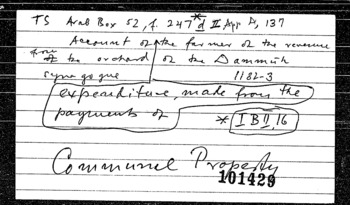 TS Arab Box 52, f. 247 *d II App D, 137
Account of the farmer of the revenue
from the orchard of the Dammūh
synagogue 1182-3
expenditure, made from the
payments of * I B II, 16
Communal Property
101429